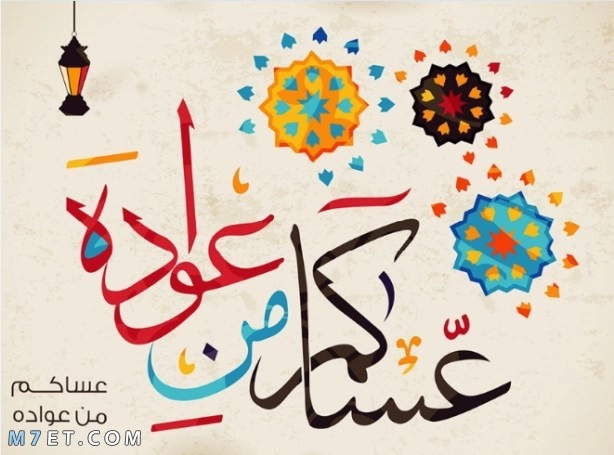 عساكم من عواده
عساكم
من عواده
M7ET.COM